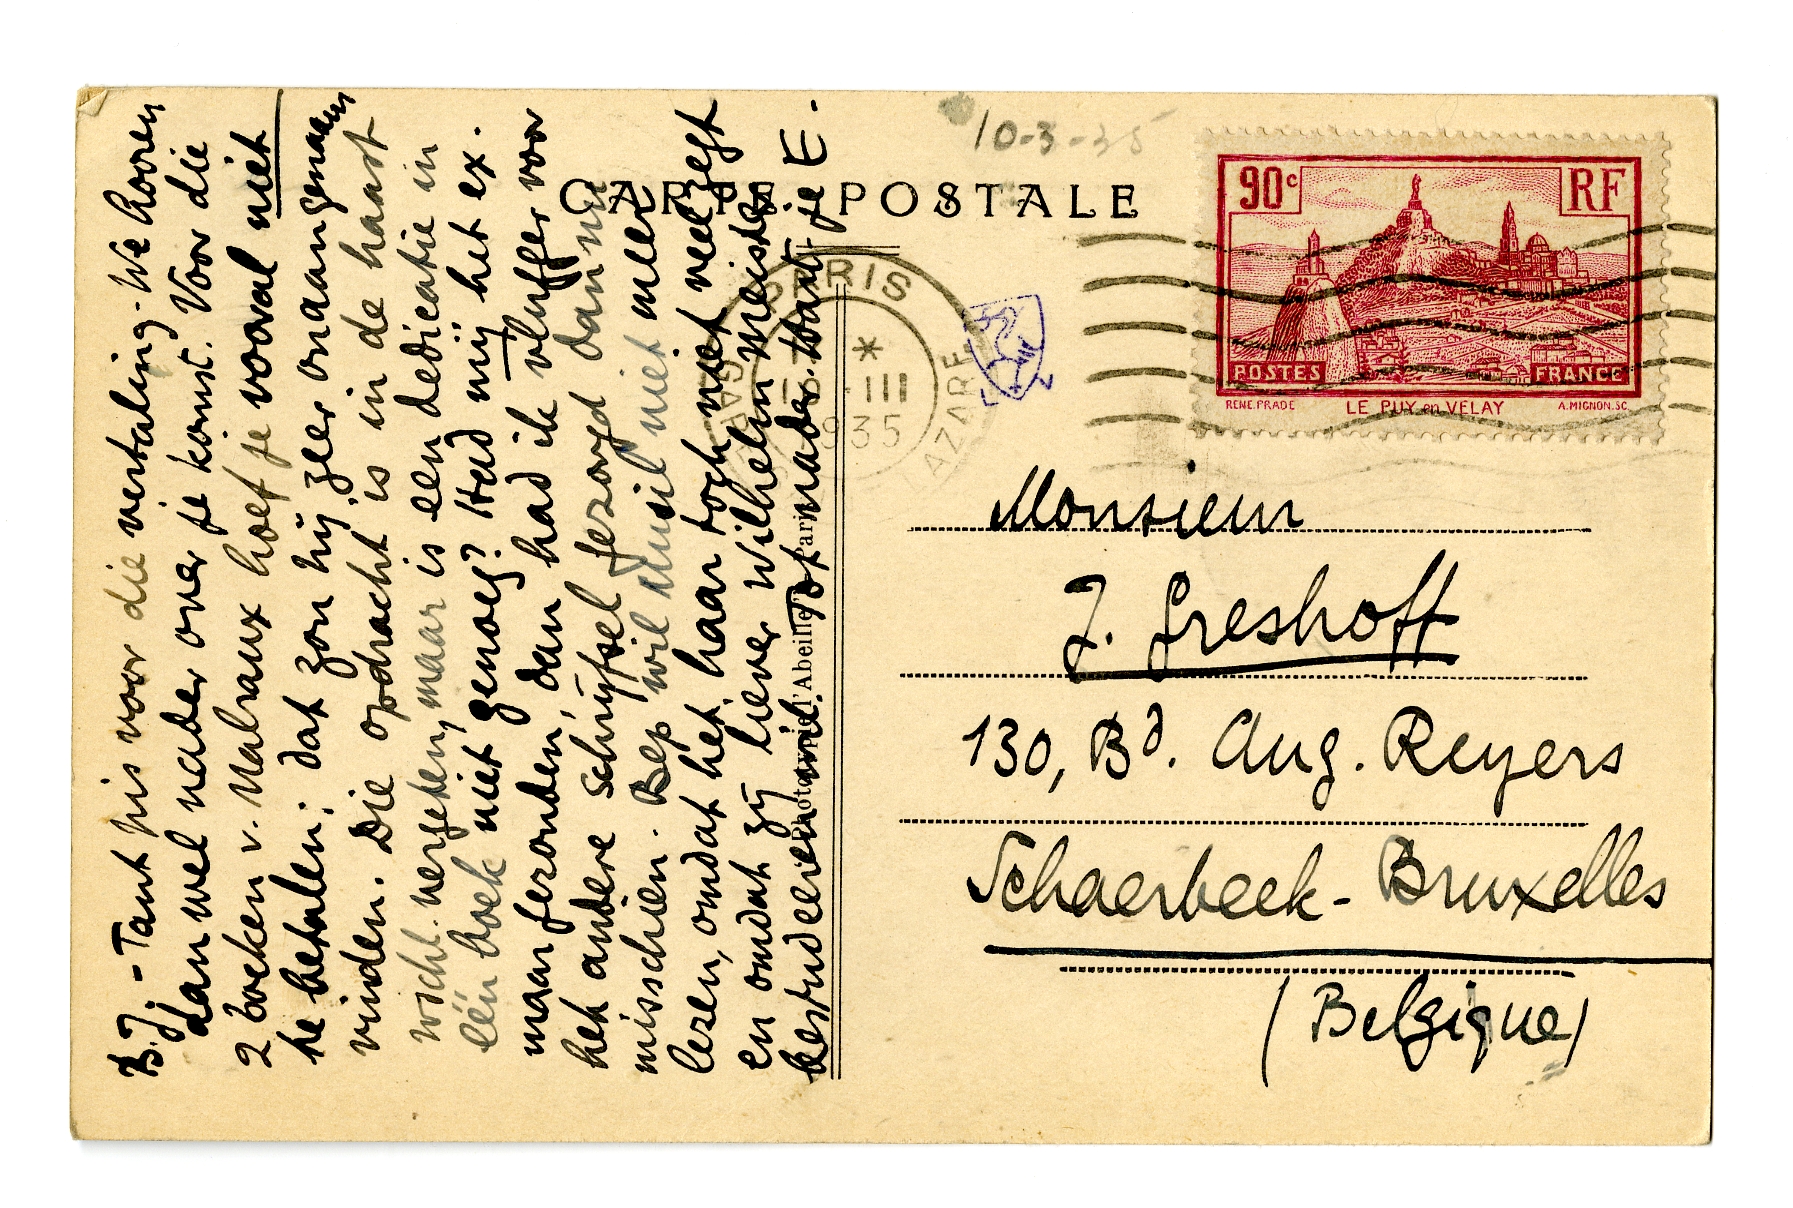 B.J. - Tant pis voor die vertaling. We hooren
dan wel nader over je komst. Voor die
2 boeken v. Malraux hoef je vooral niet
te betalen; dat zou hij zeer onaangenaam
vinden. Die opdracht is in de haast
wschl. vergeten, maar is een dedicatie in
één boek niet genoeg? Had mij het ex.
maar gezonden, dan had ik vluffer voor
het andere schrijfsel gezorgd dan nu
misschien. Bep wil Musil niet meer
lezen, omdat het haar toch niet veel zegt
en omdat zij liever Wilhelm Meister
bestudeeren wil. Tot nader. Want je E.
CARTE POSTALE
Phototypie l'Abeille, Paris
10-3-35
PARIS
GARE
AZARE
*
III
1935
90c
RF
POSTES
FRANCE
RENE.PRADE
LE PUY en VELAY
A.MIGNON.SC.
Monsieur
J. Greshoff
130, Bd. Aug. Reyers
Schaerbeek - Bruxelles
(Belgique)